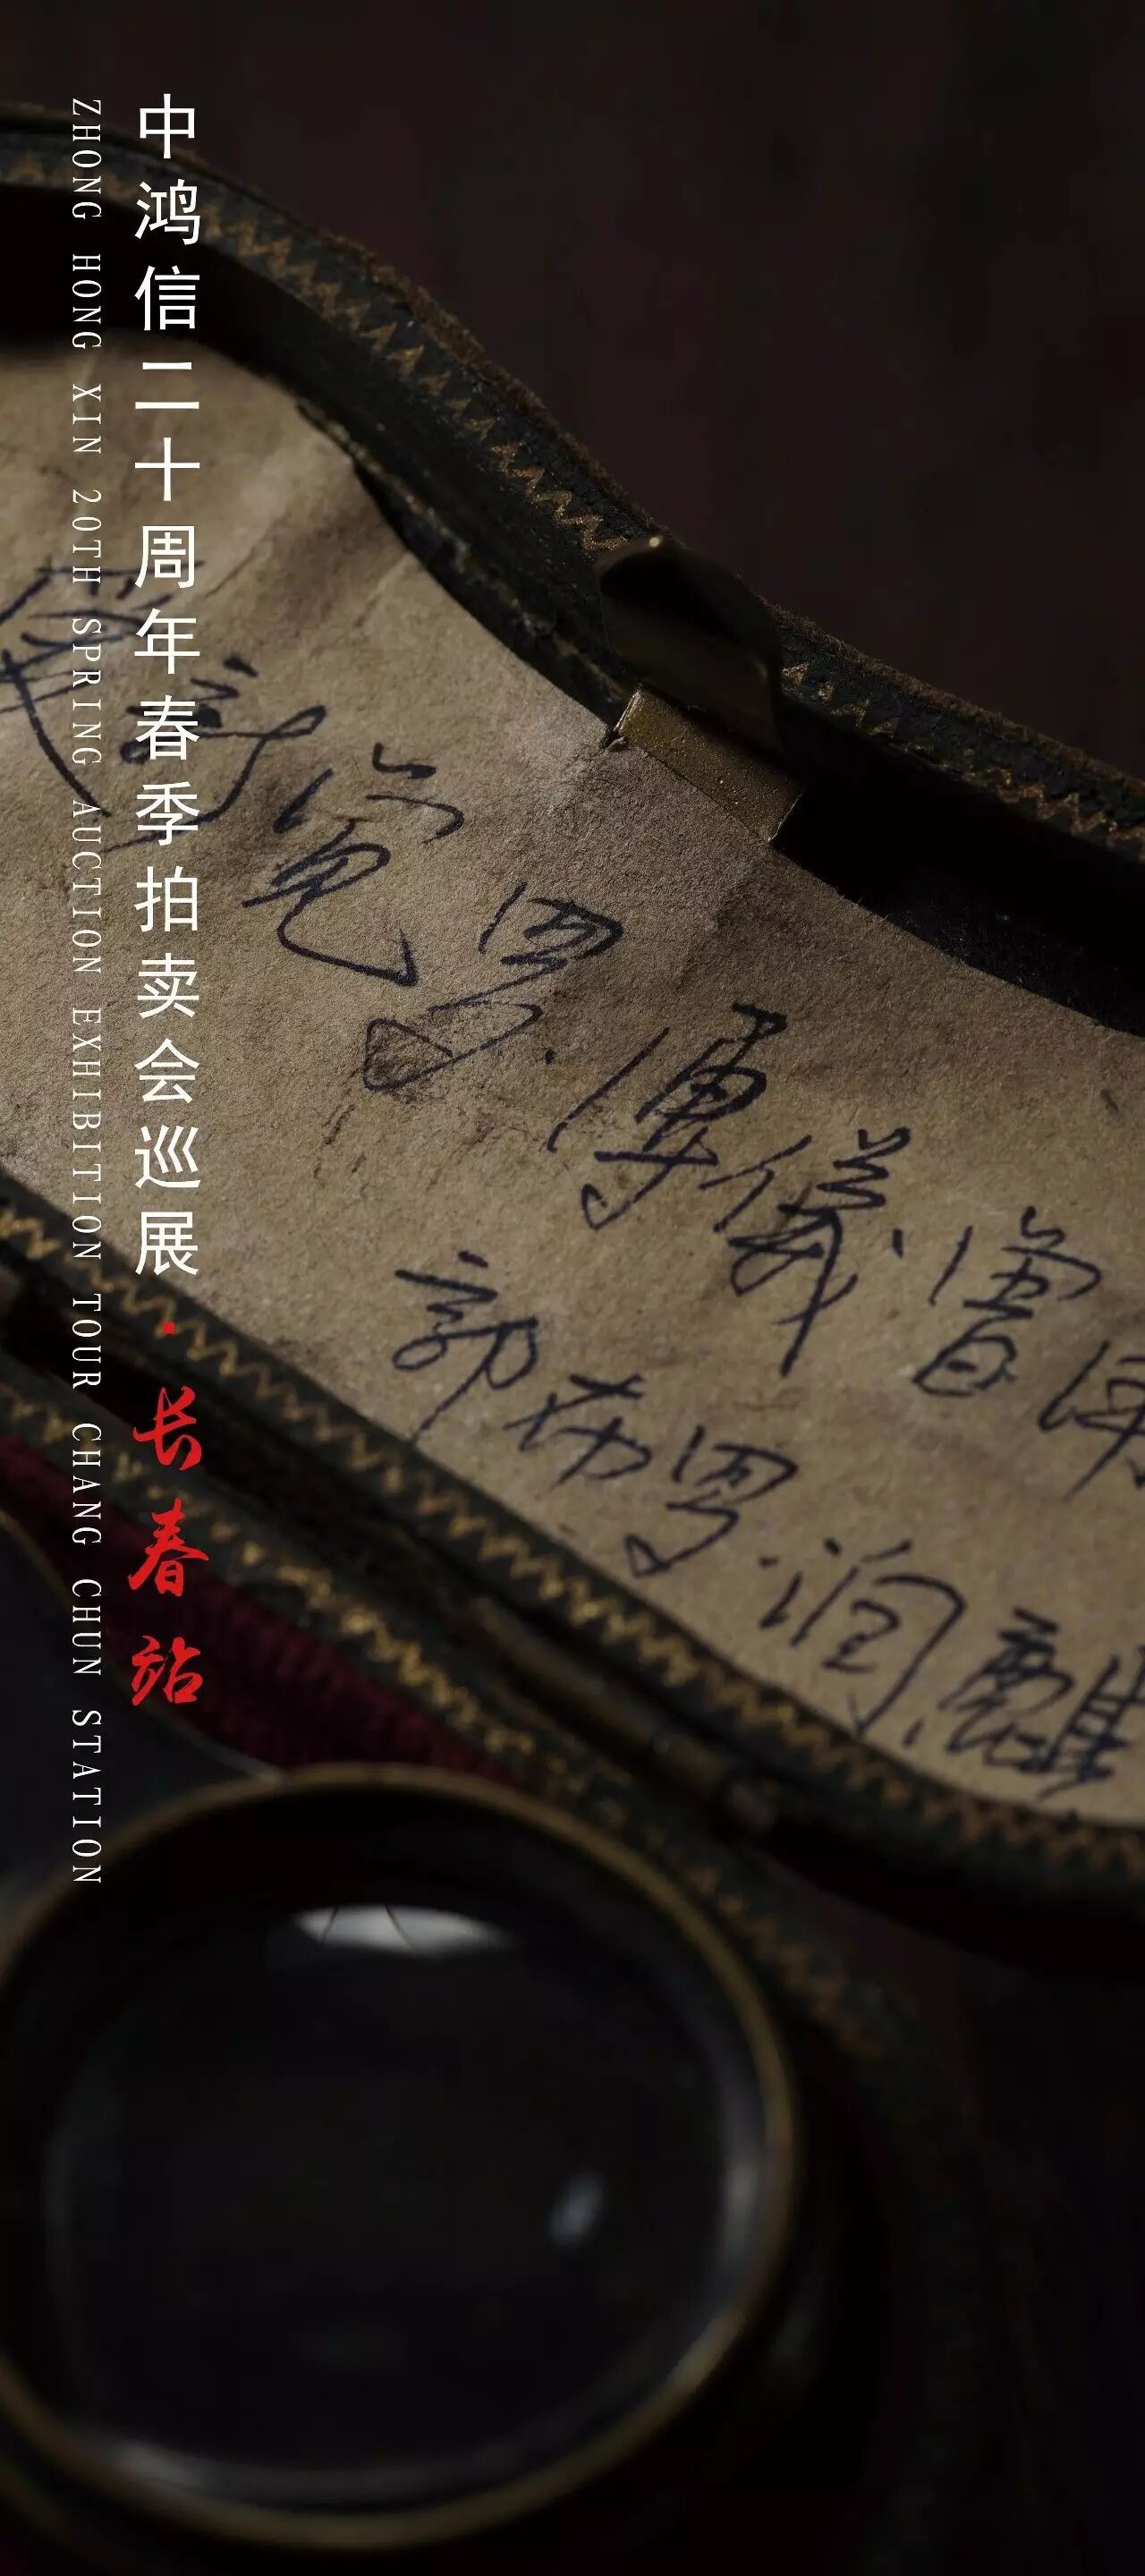 中鸿信二十周年春季拍卖会巡展·长春站
ZHONG HONG XIN 20TH SPRING AUCTION EXHIBITION TOUR CHANG CHUN STATION
新觉罗·溥仪
郭布罗·润麒